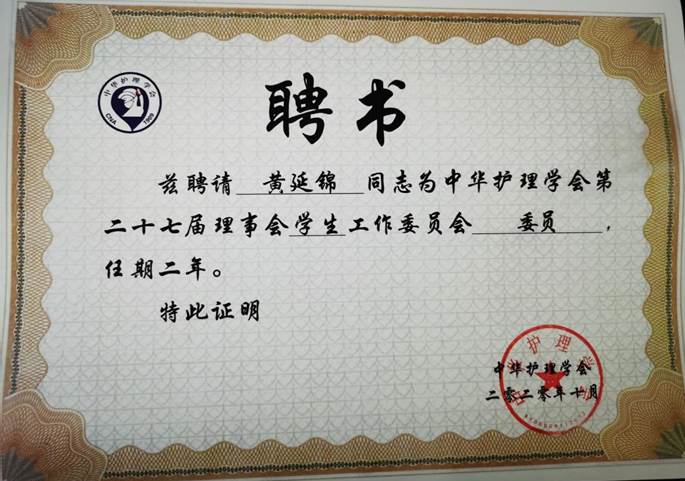 中华护理学会
CNA 1909
聘书
兹聘请 黄延锦 同志为中华护理学会第
二十七届理事会学生工作委员会 委员 ，
任期二年。
特此证明
中华护理学会
中华护理学会
二零二零年十月